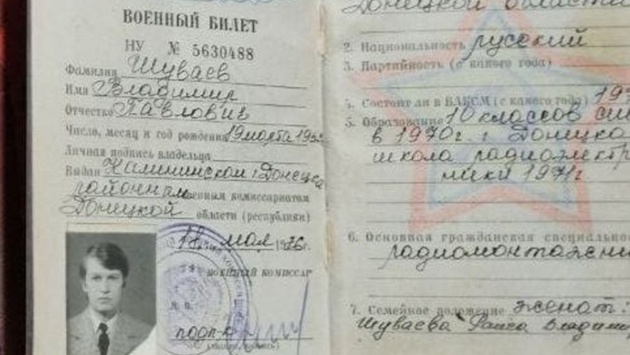 ВОЕННЫЙ БИЛЕТ
НУ № 5630488
Фамилия Шуваев
Имя Владимир
Отчество Павлович
Число, месяц и год рождения 19 марта 195
Личная подпись владельца
Выдан Калининским г. Донецка
районным военным комиссариатом
Донецкой области (республики)
18 мая 1976 г.
ВОЕННЫЙ КОМИССАР
М. П.
Донецкой области
2. Национальность русский
3. Партийность (с какого года)
4. Состоит ли в ВЛКСМ (с какого года) 19
5. Образование 10 классов
в 1970 г. г. Донецка
школа радиоэлектро
ники 1971 г
6. Основная гражданская специально
радиомонтажни
7. Семейное положение женат:
Шуваева Раиса Владими